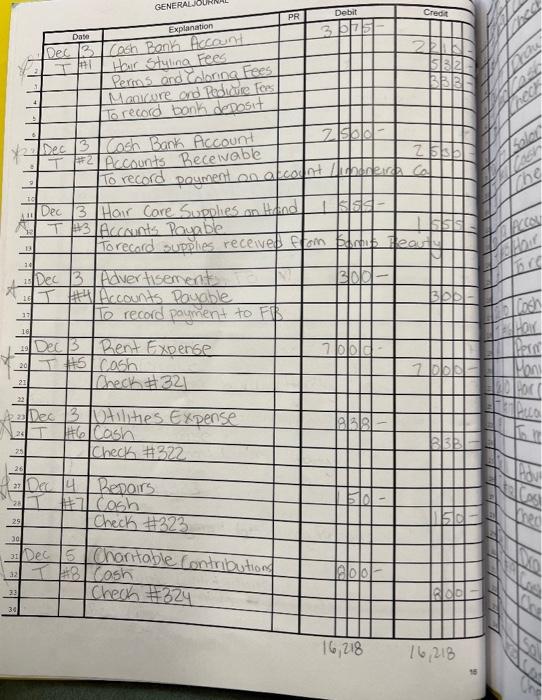 GENERAL JOURNAL
Date Explanation PR Debit Credit
1 Dec 3 Cash Bank Account 3075-
2 T #1 Hair Styling Fees 2210-
3 Perms and Coloring Fees 532-
4 Manicure and Pedicure Fees 333-
5 To record bank deposit
6
7 Dec 3 Cash Bank Account 2500-
8 T #2 Accounts Receivable 2500-
9 To record payment on account / Limoneira Co
10
11 Dec 3 Hair Care Supplies on Hand 1555-
12 T #3 Accounts Payable 1555-
13 To record supplies received from Somis Beauty
14
15 Dec 3 Advertisements 300-
16 T #4 Accounts Payable 300-
17 To record payment to FB
18
19 Dec 3 Rent Expense 7000-
20 T #5 Cash 7000-
21 Check #321
22
23 Dec 3 Utilities Expense 838-
24 T #6 Cash 838-
25 Check #322
26
27 Dec 4 Repairs 150-
28 T #7 Cash 150-
29 Check #323
30
31 Dec 5 Charitable Contributions 800-
32 T #8 Cash 800-
33 Check #324
34
16,218 16,218